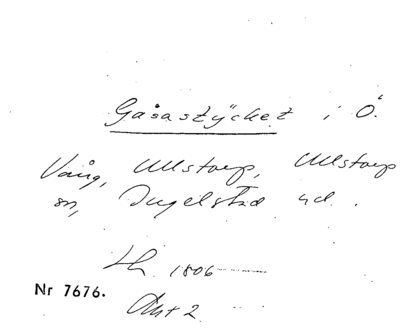 Gåsastÿcket i Ö.
Vång, Ullstorp, Ullstorp
sn, Ingelstad hd.
Lh 1806
Nr 7676.
Akt 2